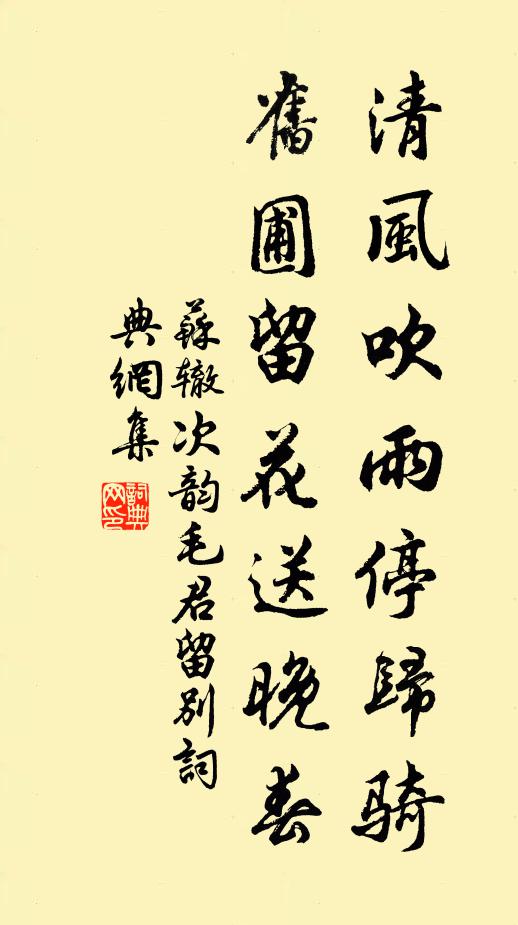 清風吹雨停歸騎
舊圃留花送晚春
蘇轍次韵毛君留別詞
典網集
詞典网印